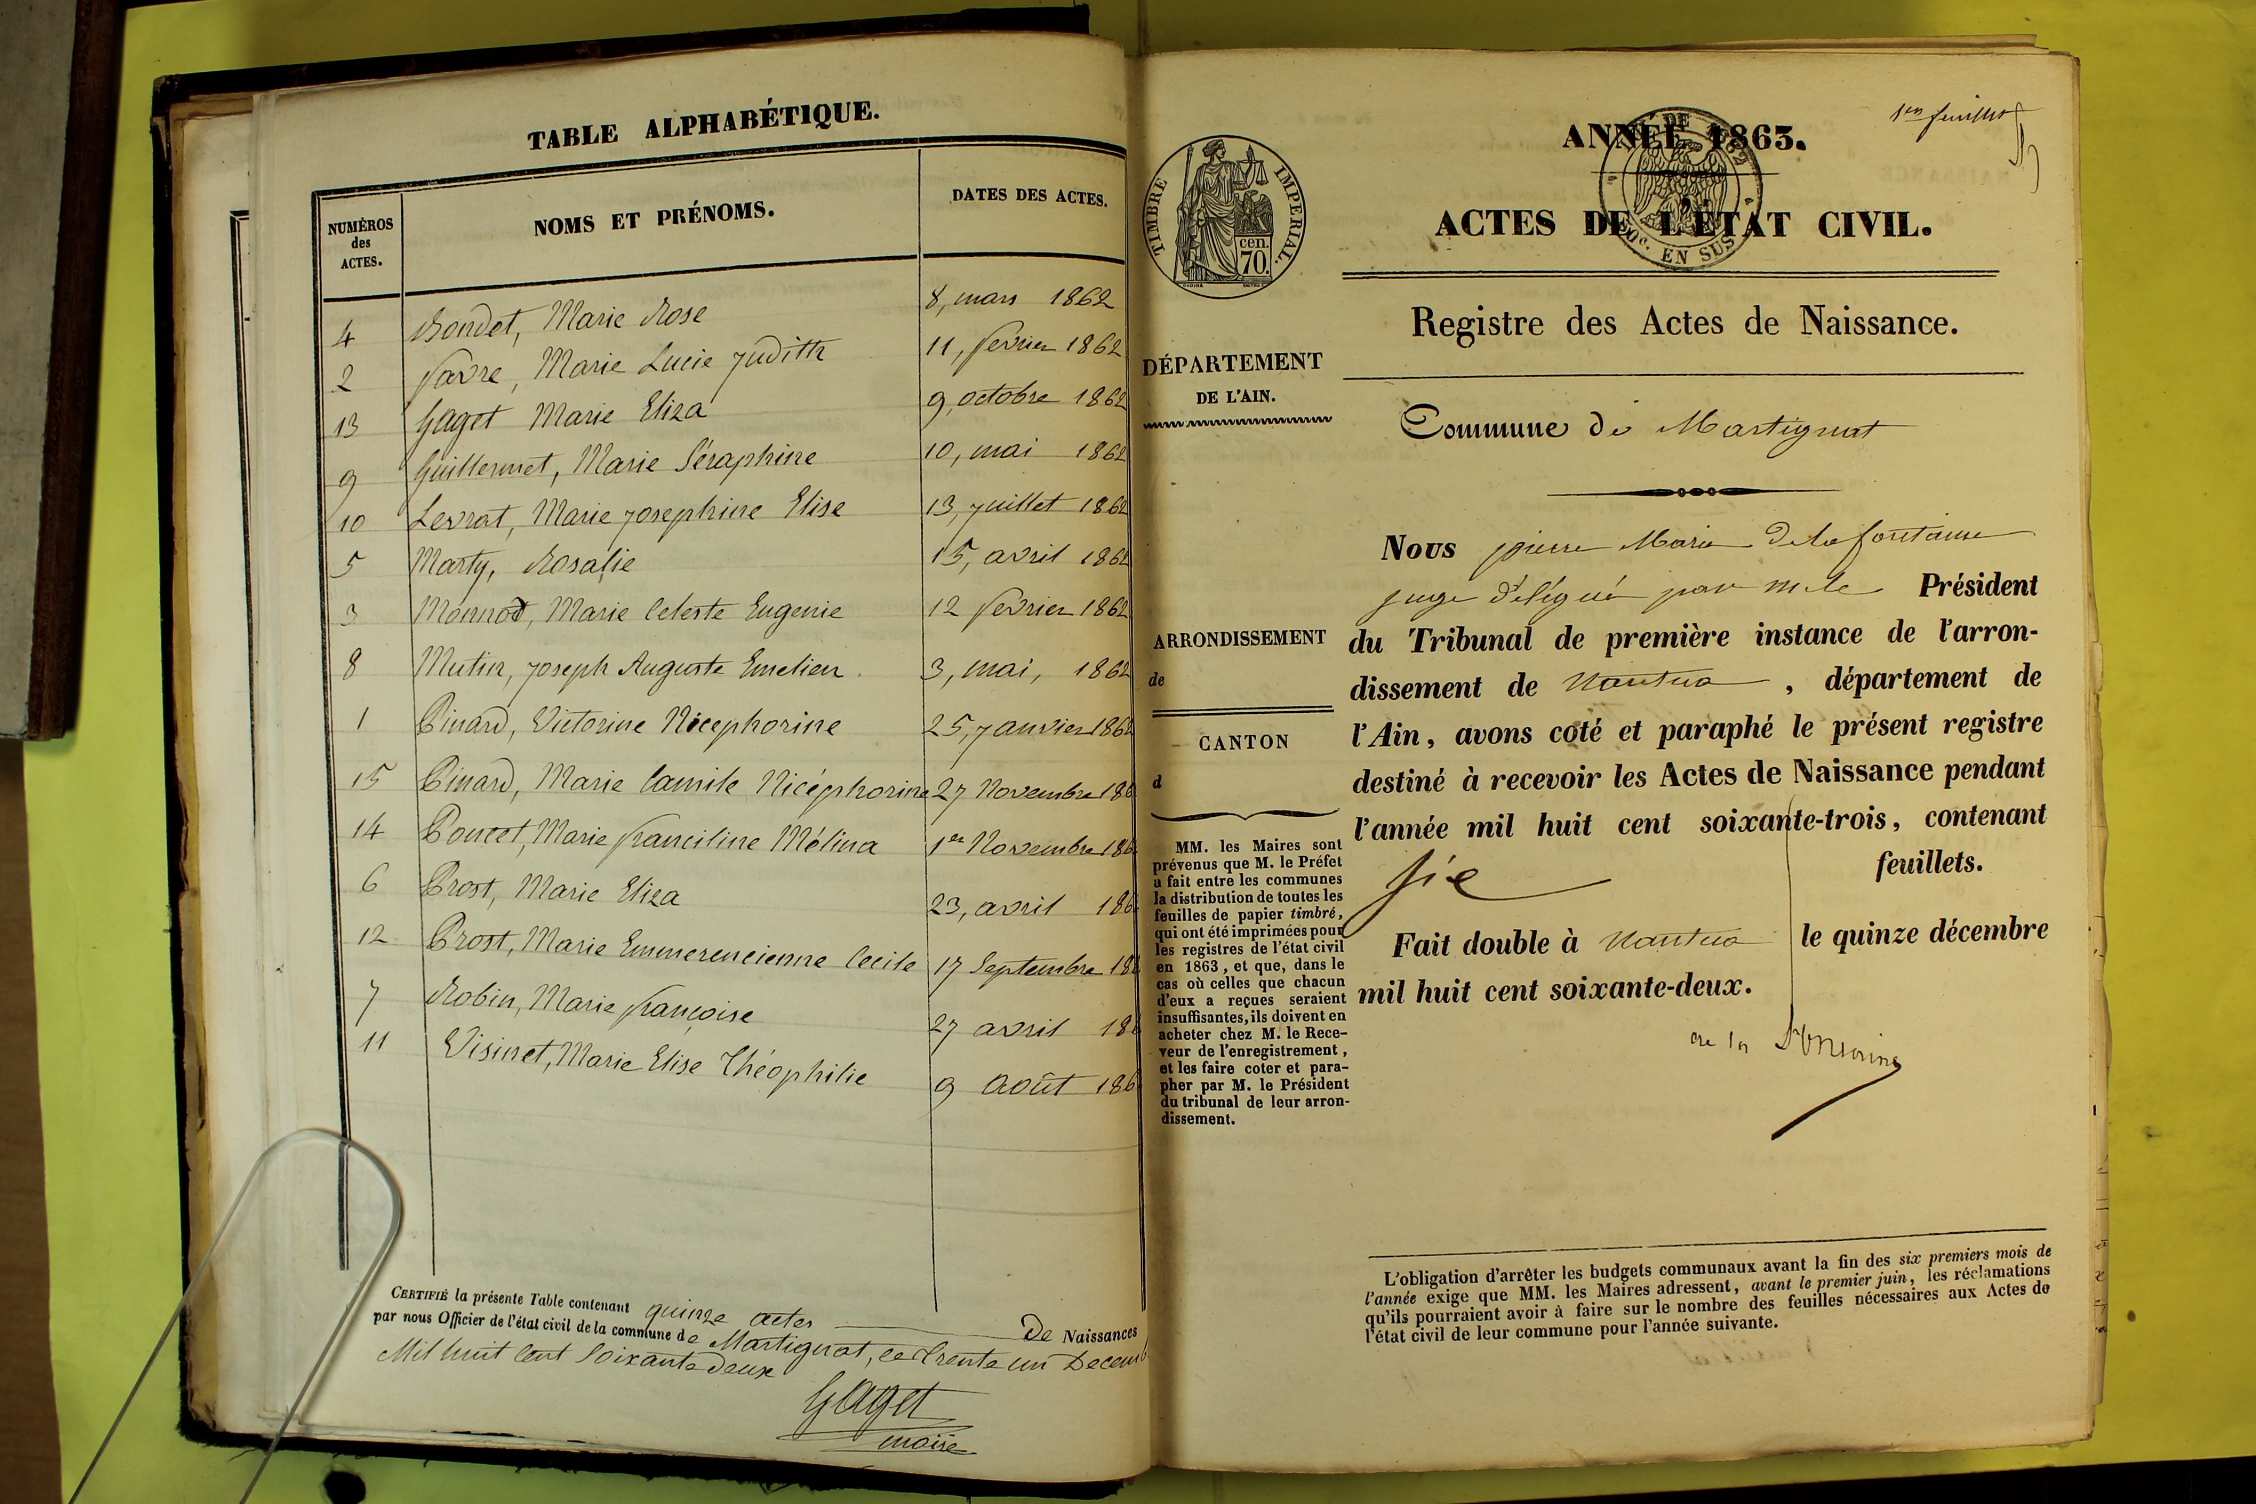 TABLE ALPHABÉTIQUE.
NUMÉROS
des
ACTES.
NOMS ET PRÉNOMS.
DATES DES ACTES.
4 Bondet, Marie Rose 8, mars 1862
2 favre, Marie Lucie Judith 11, fevrier 1862
13 Gaget Marie Eliza 9, octobre 1862
9 Guillermet, Marie Séraphine 10, mai 1862
10 Levrat, Marie Josephine Elise 13, Juillet 1862
5 Marty, Rosalie 15, avril 1862
3 Monnod, Marie Celeste Eugenie 12 fevrier 1862
8 Mutin, Joseph Auguste Emelien. 3, mai, 1862
1 Pinard, Victorine Nicephorine 25, Janvier 1862
15 Pinard, Marie Camile Nicéphorine 27 Novembre 186
14 Poncet, Marie franciline Mélina 1er Novembre 186
6 Prost, Marie Eliza 23, avril 186
12 Prost, Marie Emmerencienne Cecile 17 Septembre 186
7 Robin, Marie françoise 27 avril 186
11 Visinet, Marie Elise Théophilie 9 Août 186
CERTIFIÉ la présente Table contenant quinze actes De Naissances
par nous Officier de l'état civil de la commune de Martignat, le trente un Decemb
Mil huit cent Soixante deux
Gaget
maire
1er feuillet
TIMBRE IMPERIAL.
cen.
70.
DE 1862
EN SUS
ANNÉE 1863.
ACTES DE L'ÉTAT CIVIL.
Registre des Actes de Naissance.
DÉPARTEMENT
DE L'AIN.
Commune de Martignat
ARRONDISSEMENT
de
CANTON
d
MM. les Maires sont
prévenus que M. le Préfet
a fait entre les communes
la distribution de toutes les
feuilles de papier timbré,
qui ont été imprimées pour
les registres de l'état civil
en 1863, et que, dans le
cas où celles que chacun
d'eux a reçues seraient
insuffisantes, ils doivent en
acheter chez M. le Rece-
veur de l'enregistrement,
et les faire coter et para-
pher par M. le Président
du tribunal de leur arron-
dissement.
Nous pierre Marie De la fontaine
juge délégué par m le Président
du Tribunal de première instance de l'arron-
dissement de Nantua, département de
l'Ain, avons coté et paraphé le présent registre
destiné à recevoir les Actes de Naissance pendant
l'année mil huit cent soixante-trois, contenant
six feuillets.
Fait double à Nantua le quinze décembre
mil huit cent soixante-deux.
de la fontaine
L'obligation d'arrêter les budgets communaux avant la fin des six premiers mois de
l'année exige que MM. les Maires adressent, avant le premier juin, les réclamations
qu'ils pourraient avoir à faire sur le nombre des feuilles nécessaires aux Actes de
l'état civil de leur commune pour l'année suivante.